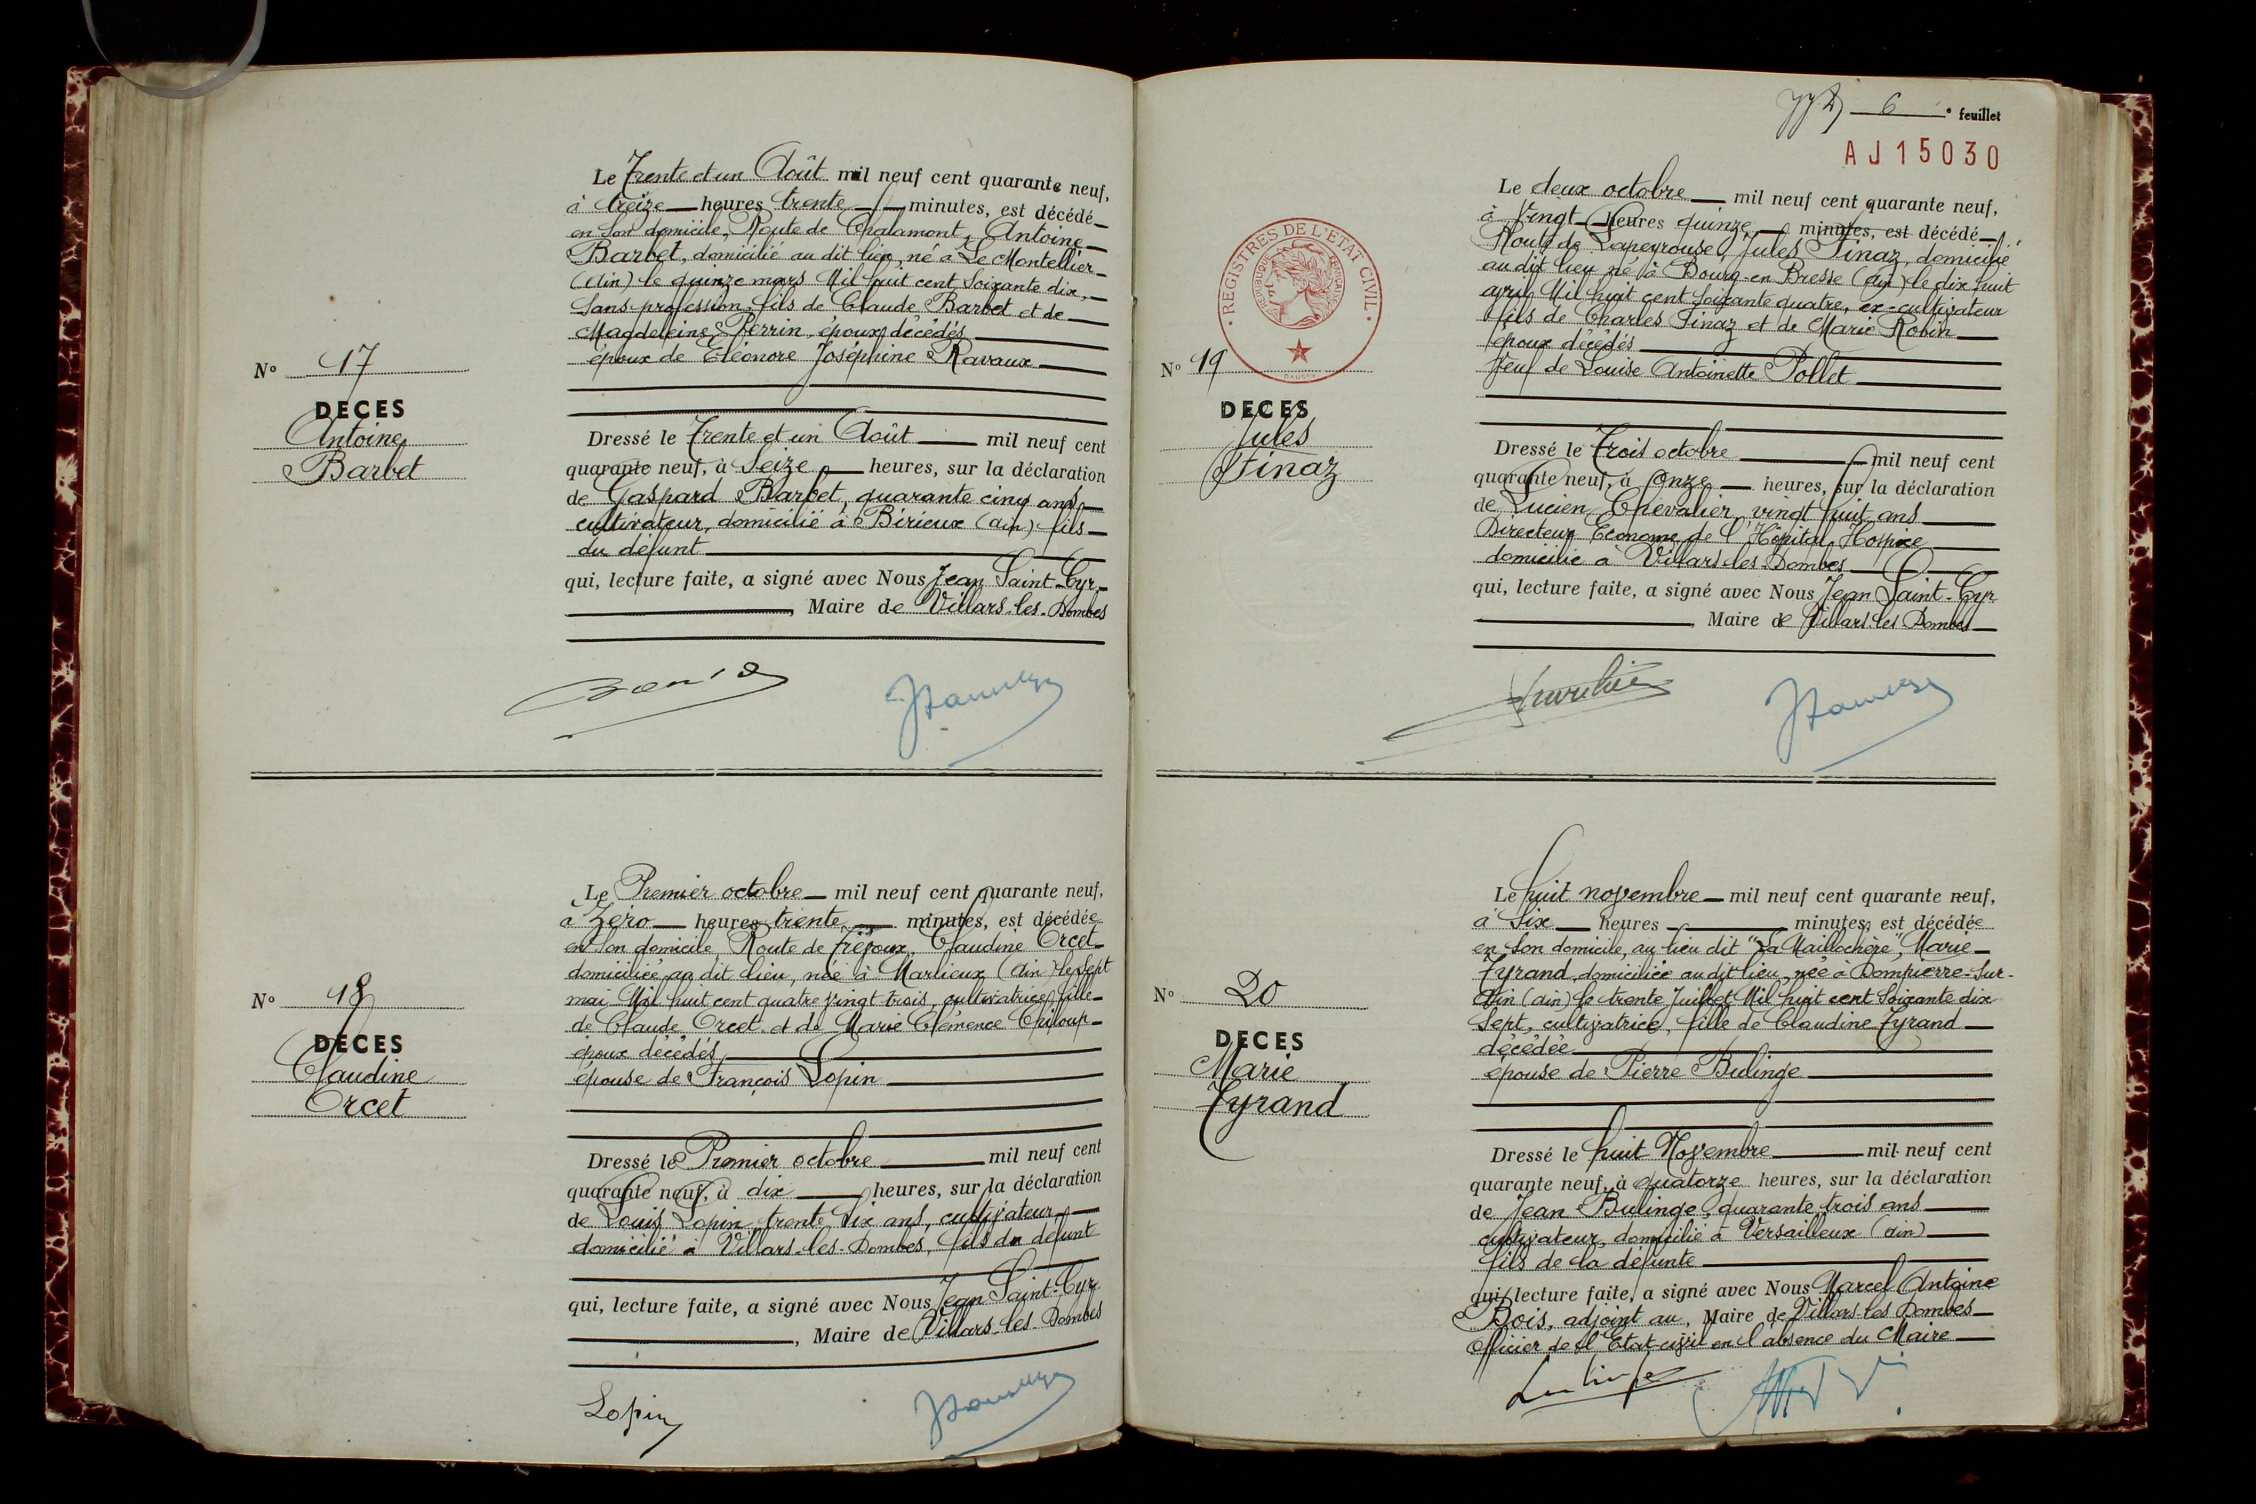 Le Trente et un Août mil neuf cent quarante neuf,
à treize heures trente minutes, est décédé
en son domicile, Route de Chalamont, Antoine
Barbet, domicilié au dit lieu, né à Le Montellier
(Ain) le quinze mars Mil huit cent soixante dix,
sans profession, fils de Claude Barbet et de
Magdeleine Perrin, époux décédés
époux de Eléonore Joséphine Ravaux
N° 17
DECES
Antoine
Barbet
Dressé le Trente et un Août mil neuf cent
quarante neuf, à Seize heures, sur la déclaration
de Gaspard Barbet, quarante cinq ans
cultivateur, domicilié à Birieux (Ain) fils
du défunt
qui, lecture faite, a signé avec Nous Jean Saint-Cyr,
, Maire de Villars-les-Dombes
Le Premier octobre mil neuf cent quarante neuf,
à Zéro heures trente minutes, est décédée
en son domicile, Route de Trévoux, Claudine Orcet
domiciliée au dit lieu, née à Marlieux (Ain) le sept
mai Mil huit cent quatre vingt trois, cultivatrice, fille
de Claude Orcet et de Marie Clémence
époux décédés
épouse de François Lopin
N° 18
DECES
Claudine
Orcet
Dressé le Premier octobre mil neuf cent
quarante neuf, à dix heures, sur la déclaration
de Louis Lopin trente six ans, cultivateur
domicilié à Villars-les-Dombes, fils du défunt
qui, lecture faite, a signé avec Nous Jean Saint-Cyr
, Maire de Villars-les-Dombes
Lopin
6 e feuillet
AJ15030
REGISTRES DE L'ETAT CIVIL
REPUBLIQUE FRANÇAISE
Le deux octobre mil neuf cent quarante neuf,
à Vingt heures quinze minutes, est décédé
Route de Lapeyrouse, Jules Finaz, domicilié
au dit lieu né à Bourg-en-Bresse (Ain) le dix huit
avril Mil huit cent soixante quatre, ex-cultivateur
fils de Charles Finaz et de Marie Robin
époux décédés
Veuf de Louise Antoinette Pollet
N° 19
DECES
Jules
Finaz
Dressé le Trois octobre mil neuf cent
quarante neuf, à Onze heures, sur la déclaration
de Lucien Chevalier, vingt huit ans
Directeur Econome de l'Hôpital Hospice
domicilié à Villars-les-Dombes
qui, lecture faite, a signé avec Nous Jean Saint-Cyr
, Maire de Villars-les-Dombes
Le huit novembre mil neuf cent quarante neuf,
à Six heures minutes, est décédée
en son domicile, au lieu dit "La Maillochère", Marie
Tyrand, domiciliée au dit lieu, née à Dompierre-sur-
Ain (Ain) le trente Juillet Mil huit cent soixante dix
sept, cultivatrice, fille de Claudine Tyrand
décédée
épouse de Pierre Bulinge
N° 20
DECES
Marie
Tyrand
Dressé le huit Novembre mil neuf cent
quarante neuf, à quatorze heures, sur la déclaration
de Jean Bulinge, quarante trois ans
cultivateur, domicilié à Versailleux (Ain)
fils de la défunte
qui, lecture faite, a signé avec Nous Marcel Antoine
Bois, adjoint au, Maire de Villars-les-Dombes
Officier de l'Etat civil en l'absence du Maire